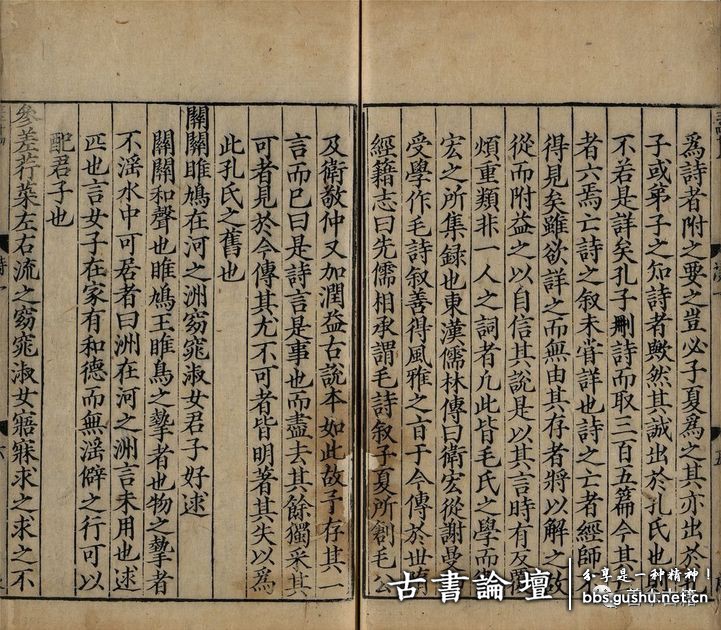 爲詩者附之要之豈必子夏爲之其亦出於
子或弟子之知詩者歟然其誠出於孔氏也
不若是詳矣孔子刪詩而取三百五篇今其
者六焉亡詩之叙未嘗詳也詩之亡者經師
得見矣雖欲詳之而無由其存者將以解之故
從而附益之以自信其說是以其言時有反
煩重類非一人之詞者凡此皆毛氏之學而
宏之所集録也東漢儒林傳曰衛宏從謝曼
受學作毛詩叙善得風雅之㫖于今傳於世隋
經籍志曰先儒相承謂毛詩叙子夏所創毛公
及衛敬仲又加潤益古說本如此故予存其一
言而已曰是詩言是事也而盡去其餘獨采其
可者見於今傳其尤不可者皆明著其失以爲
此孔氏之舊也
關關雎鳩在河之洲窈窕淑女君子好逑
關關和聲也雎鳩王雎鳥之摯者也物之摯者
不淫水中可居者曰洲在河之洲言未用也逑
匹也言女子在家有和德而無淫僻之行可以
配君子也
參差荇菜左右流之窈窕淑女寤寐求之求之不
詩一
六
古書論壇
分享是一种精神!
bbs.gushu.net.cn